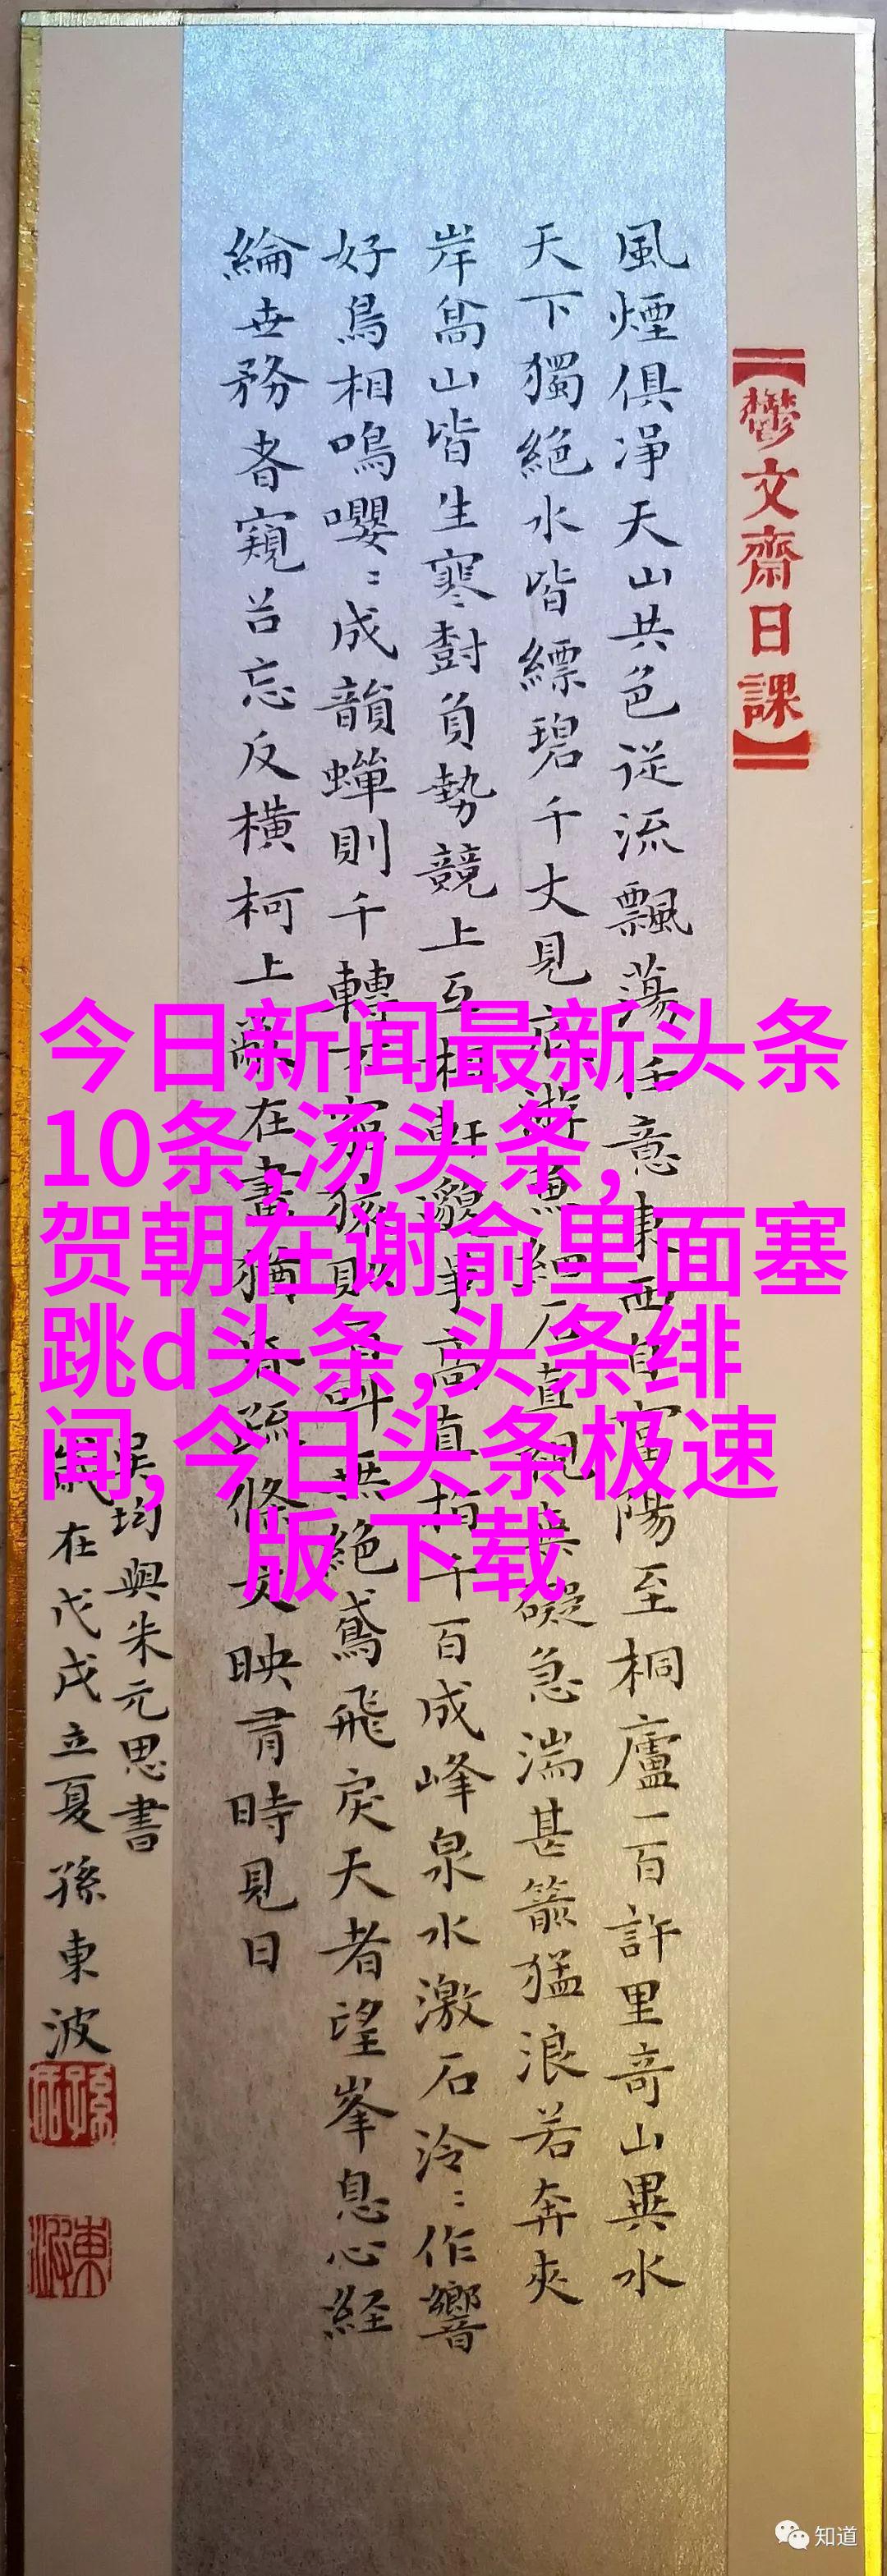 【鬱文齋日課】
風煙俱淨天山共色從流飄蕩任意東西自富陽至桐廬一百許里奇山異水
天下獨絕水皆縹碧千丈見底游魚細石直視無礙急湍甚箭猛浪若奔夾
岸高山皆生寒樹負勢競上互相軒邈爭高直指千百成峰泉水激石泠〻作響
好鳥相鳴嚶〻成韻蟬則千轉不窮猿則百叫無絕鳶飛戾天者望峯息心経
綸世務者窺谷忘反橫柯上蔽在晝猶昏疏條交映有時見日
吳均與朱元思書
歲在戊戌立夏孫東波
今日新闻最新头条
10条,汤头条,
贺朝在谢俞里面塞
跳d头条,头条绯
闻,今日头条极速
版下载
知道